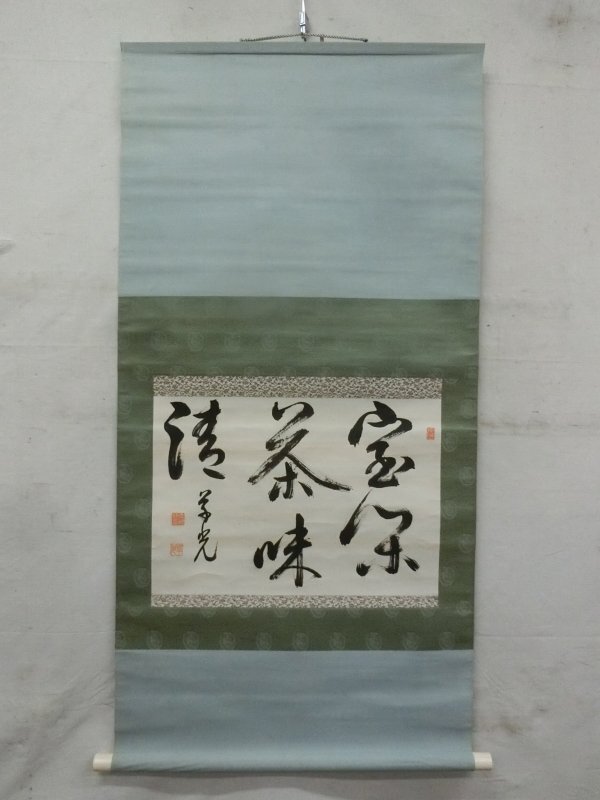 室閑
茶味
清